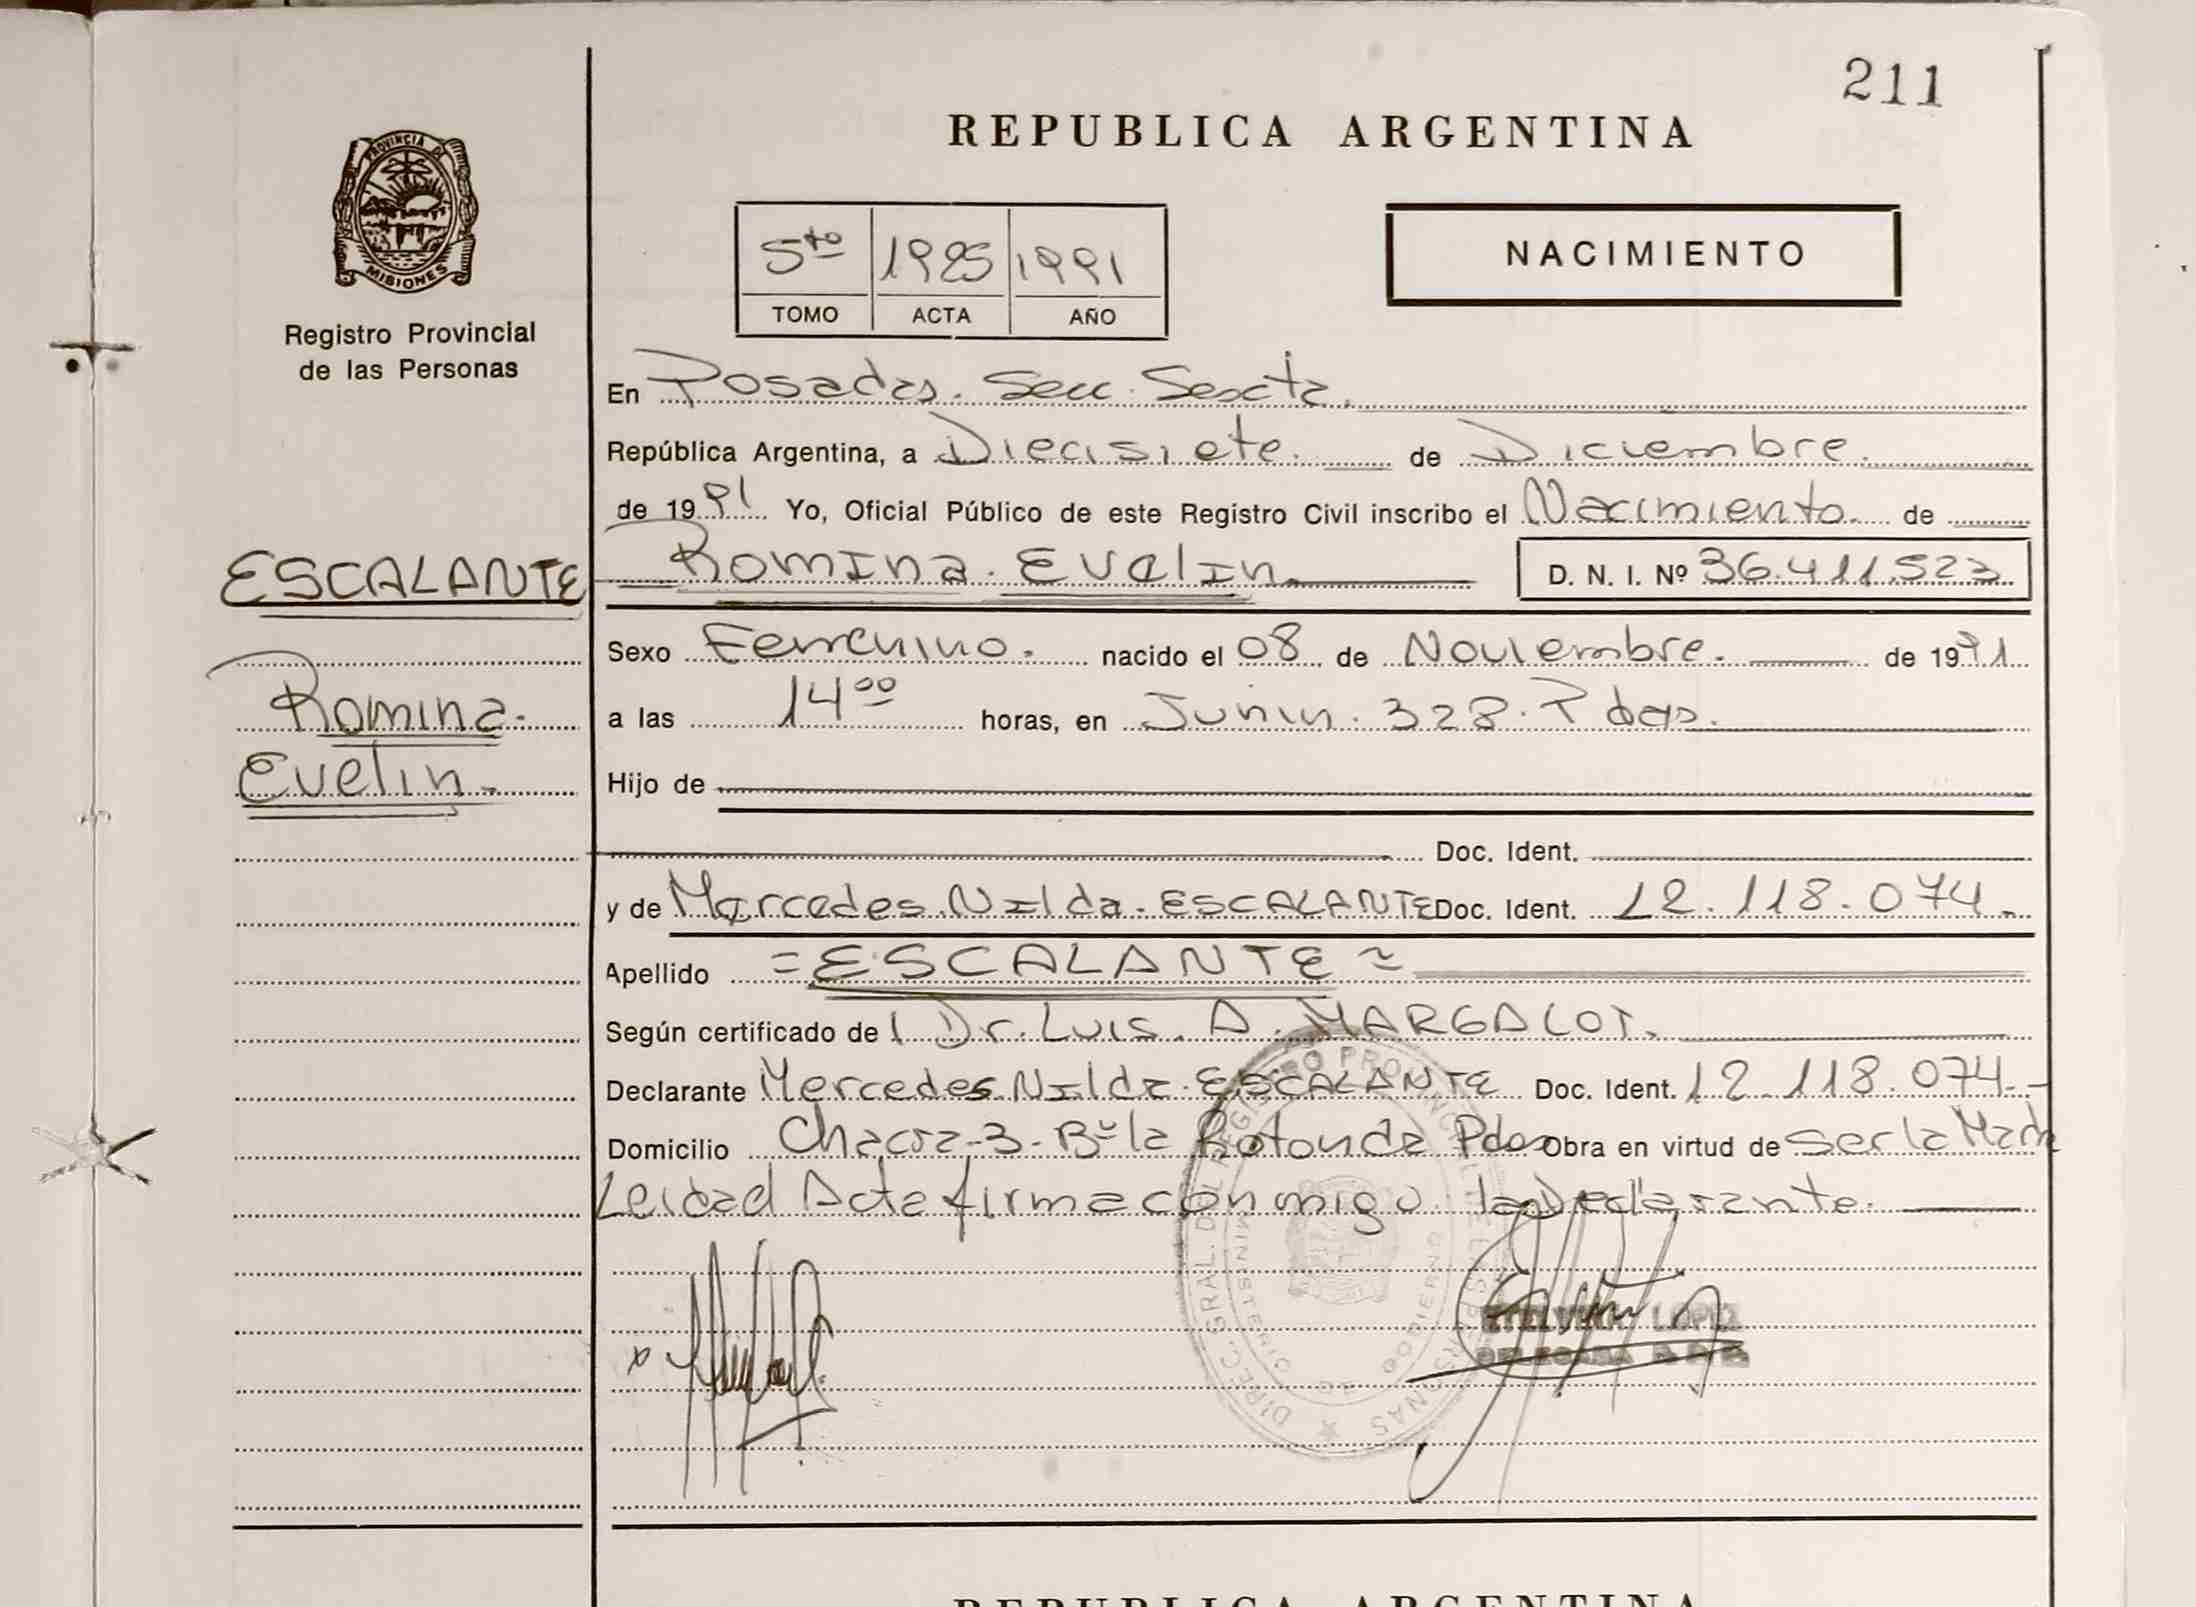 211
REPUBLICA ARGENTINA
PROVINCIA DE
MISIONES
Registro Provincial
de las Personas
5to 1925 1991
TOMO ACTA AÑO
NACIMIENTO
En Posadas. Secc. Sexta.
República Argentina, a Diecisiete. de Diciembre.
de 1991 Yo, Oficial Público de este Registro Civil inscribo el Nacimiento. de
ESCALANTE Romina. Evelin D. N. I. Nº 36.411.523
Sexo Femenino. nacido el 08 de Noviembre. de 1991
Romina. a las 14 00 horas, en Junin. 328. Pdas.
Evelin. Hijo de
Doc. Ident.
y de Mercedes. Nilda. ESCALANTE Doc. Ident. 12.118.074.
Apellido = ESCALANTE =
Según certificado de l Dr. Luis. A. MARGALOT.
Declarante Mercedes. Nilda. ESCALANTE Doc. Ident. 12.118.074.-
Domicilio Chacra-3-Bº la Rotonda Pdas Obra en virtud de ser la Madre
Leidad Acta firma conmigo la Declarante.
DIREC. GRAL. DEL REGISTRO PROVINCIAL DE LAS PERSONAS
MINISTERIO DE GOBIERNO
x
LOPEZ
DELEGADA R.P.P.
REPUBLICA ARGENTINA